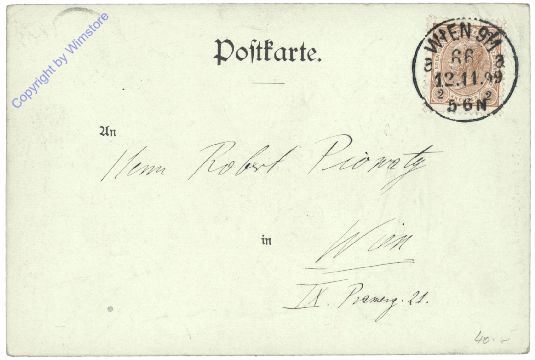 Copyright by Wimstore
Postkarte.
WIEN 9/1
66
12.11.99
2 2
5-6N
An
Herrn Robert
in
Wien
IX. Pramerg. 21.
40.-